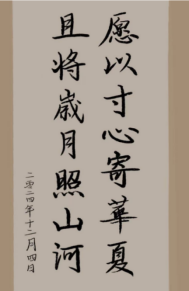 愿以寸心寄華夏
且将歲月照山河
二零二四年十二月四日